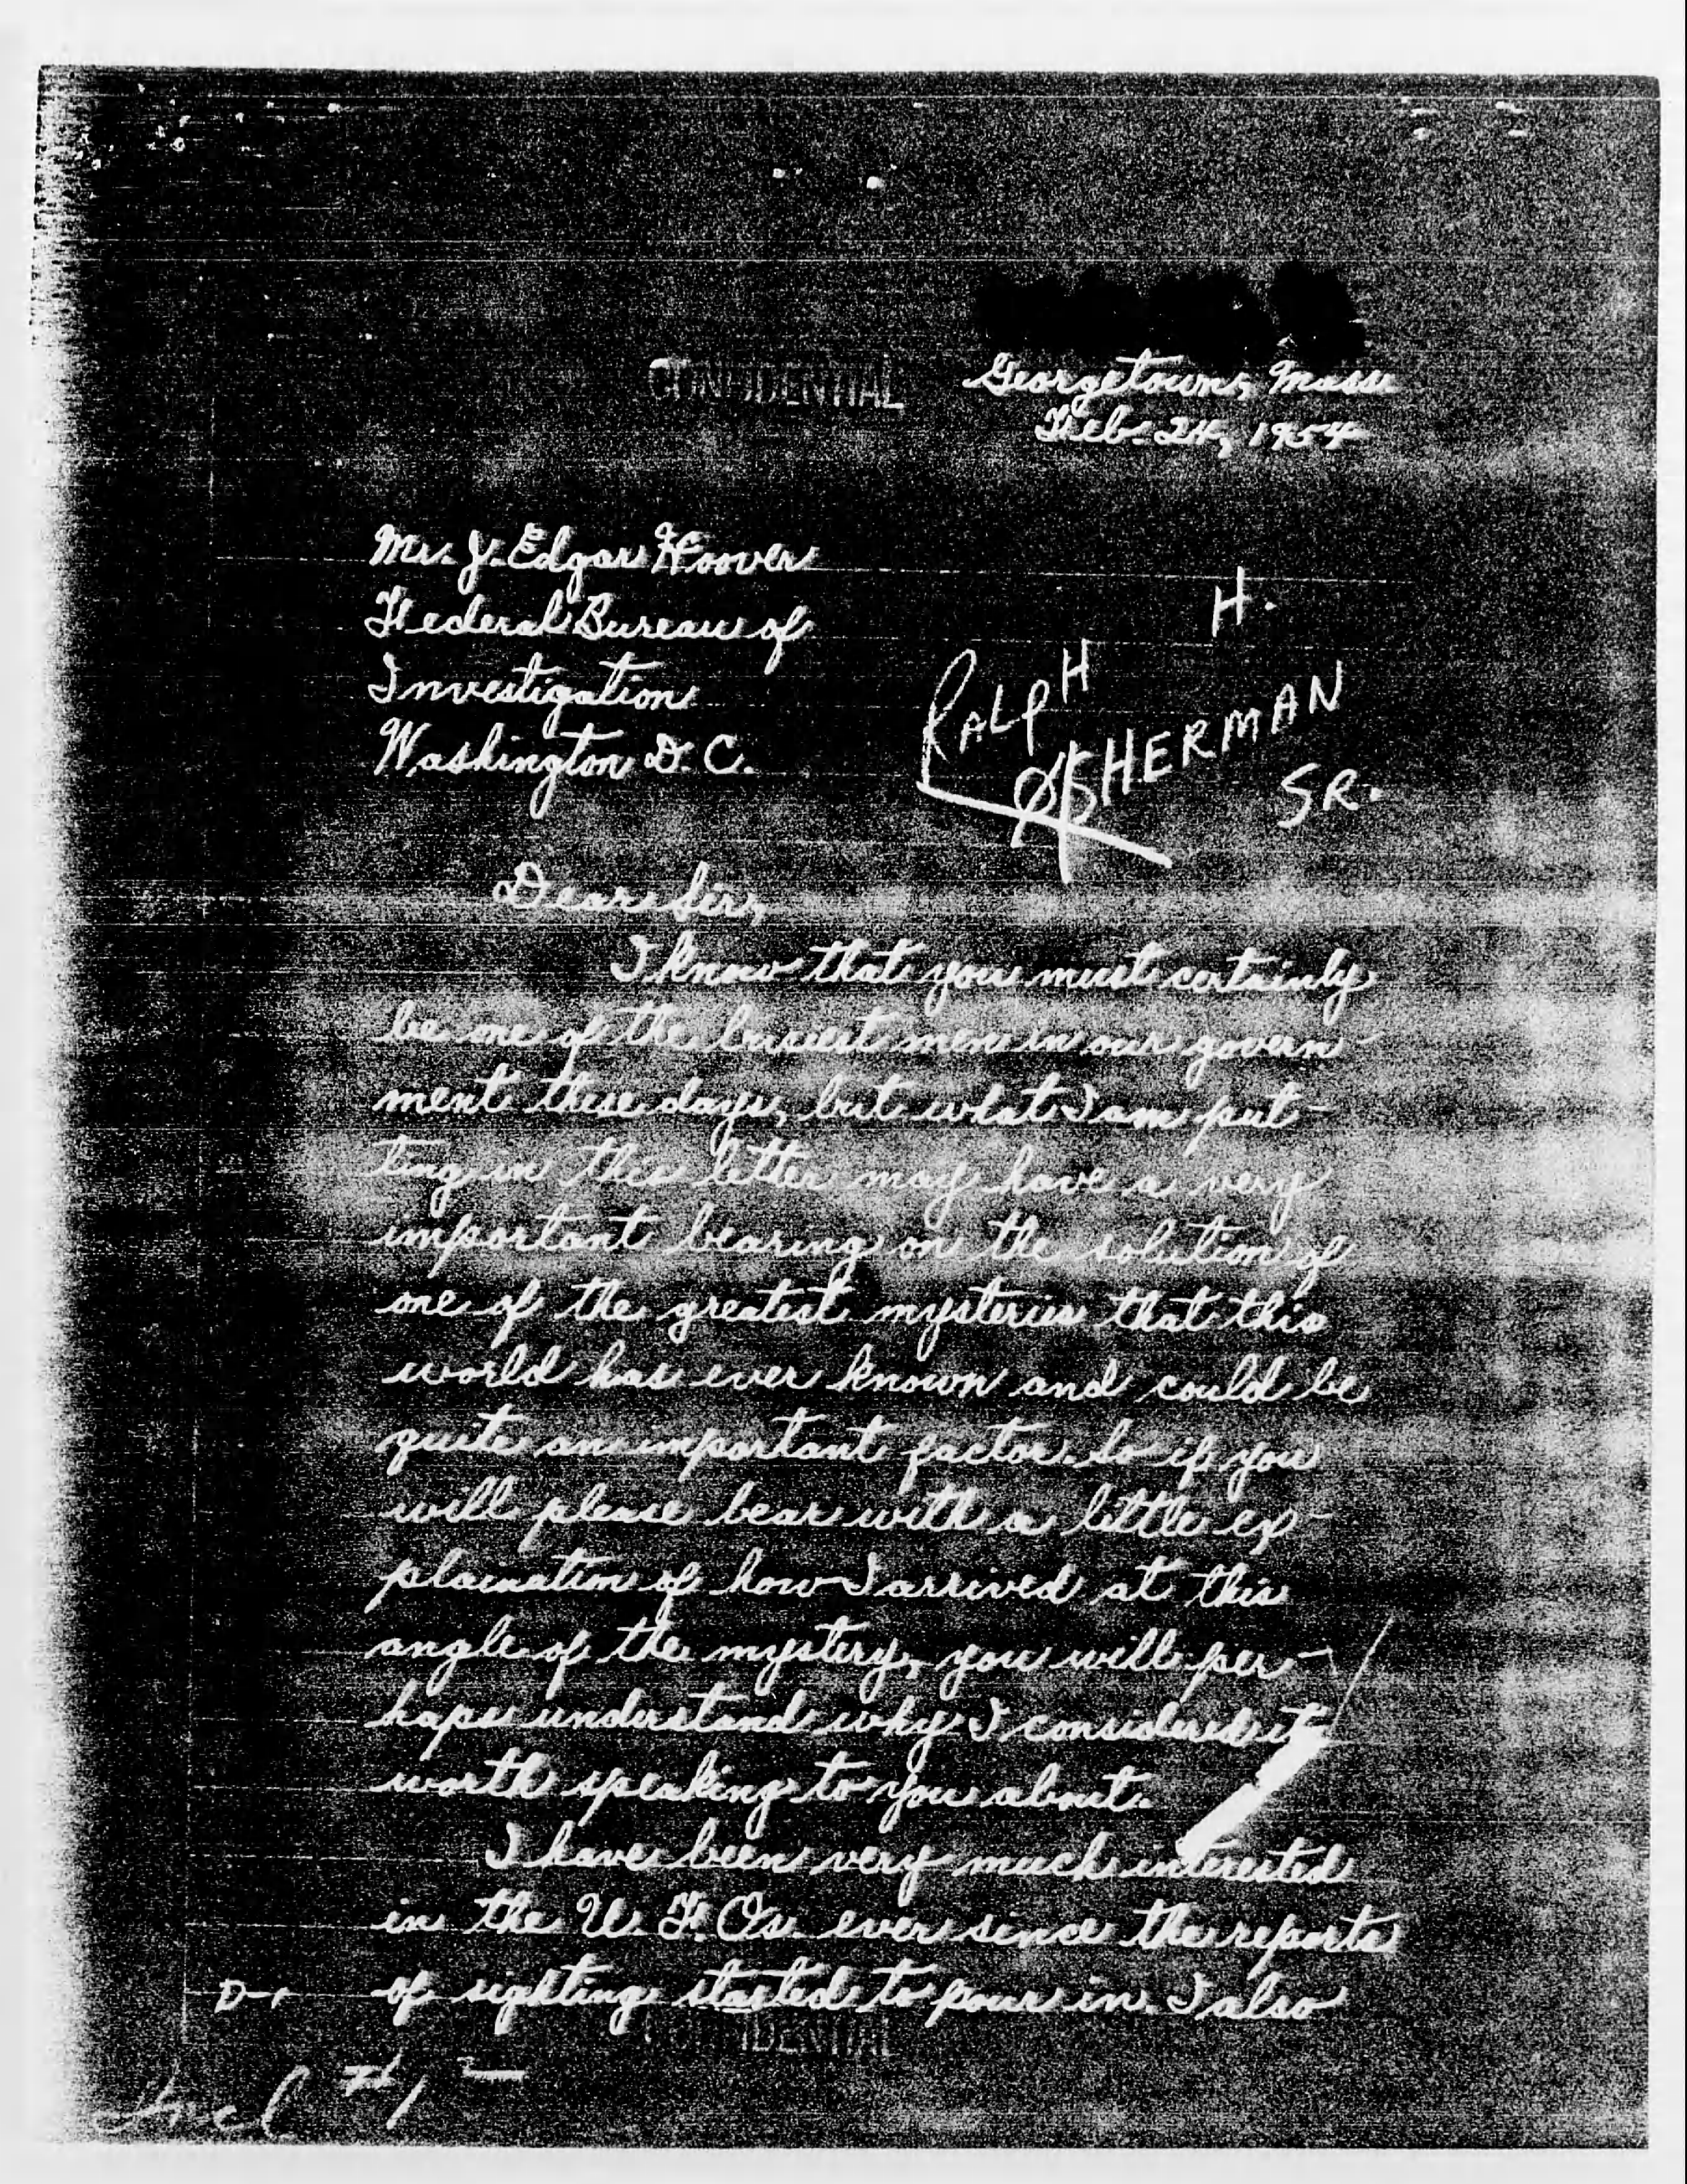 CONFIDENTIAL
Georgetown, Mass.
Feb. 24, 1954
Mr. J. Edgar Hoover
Federal Bureau of
Investigation
Washington D. C.
H.
RALPH
SHERMAN
SR.
Dear Sir,
I know that you must certainly
be one of the busiest men in our govern-
ment these days, but what I am put-
ting in this letter may have a very
important bearing on the solution of
one of the greatest mysteries that this
world has ever known and could be
quite an important factor. So if you
will please bear with a little ex-
plaination of how I arrived at this
angle of the mystery, you will per-
haps understand why I considered it
worth speaking to you about.
I have been very much interested
in the U. F. Os. ever since the reports
of sighting started to pour in. I also
CONFIDENTIAL
Incl #1